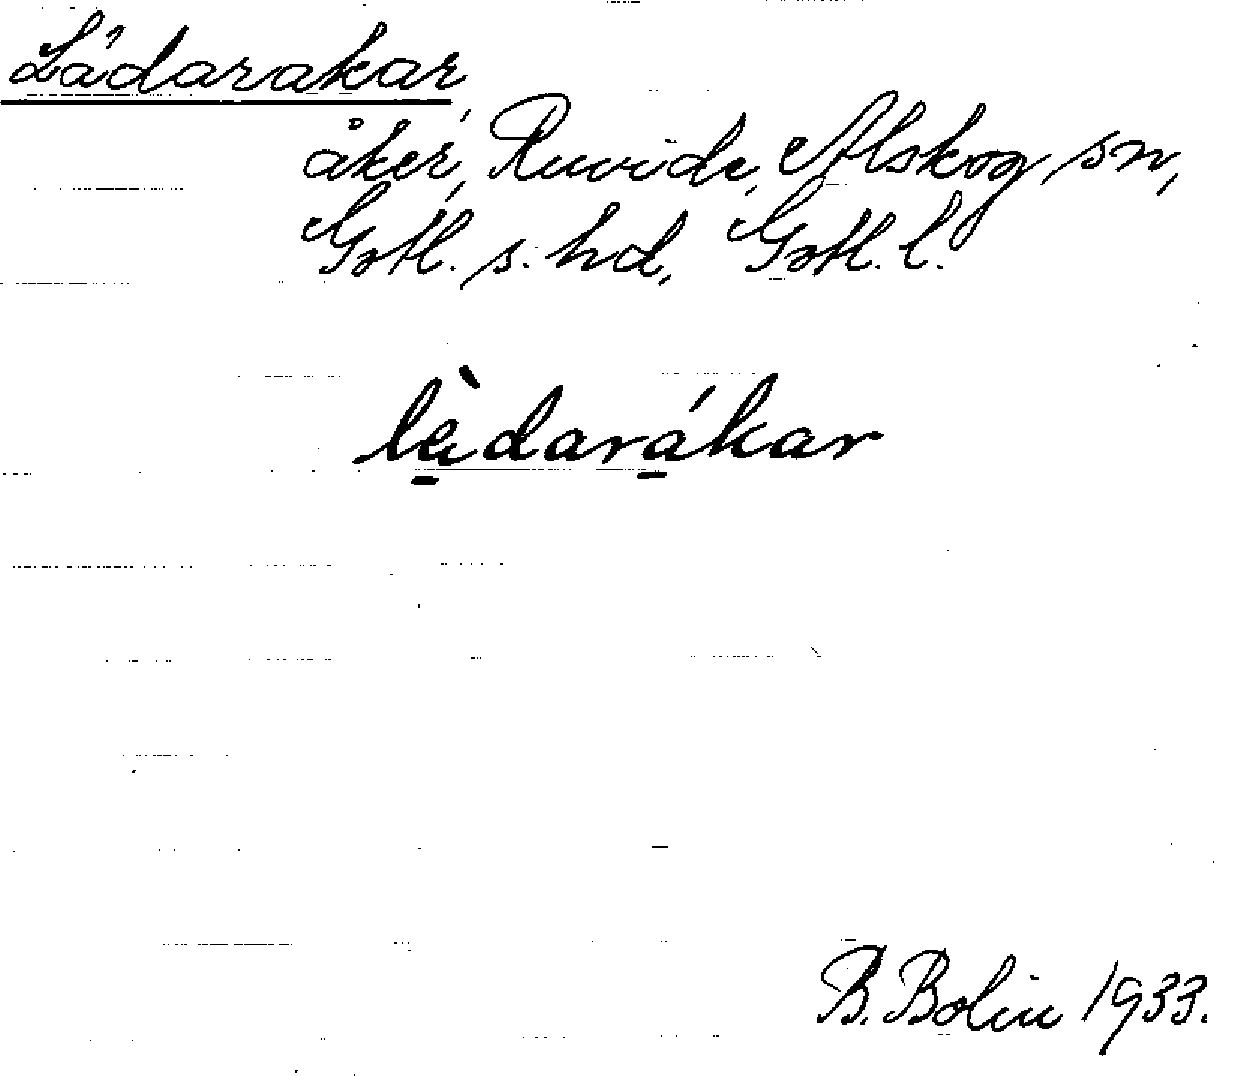 Lådarakar,
åker, Ruvide, Alskog sn,
Gotl. s. hd, Gotl. l.
lạ̀darạ́kar
B. Bolin 1933.